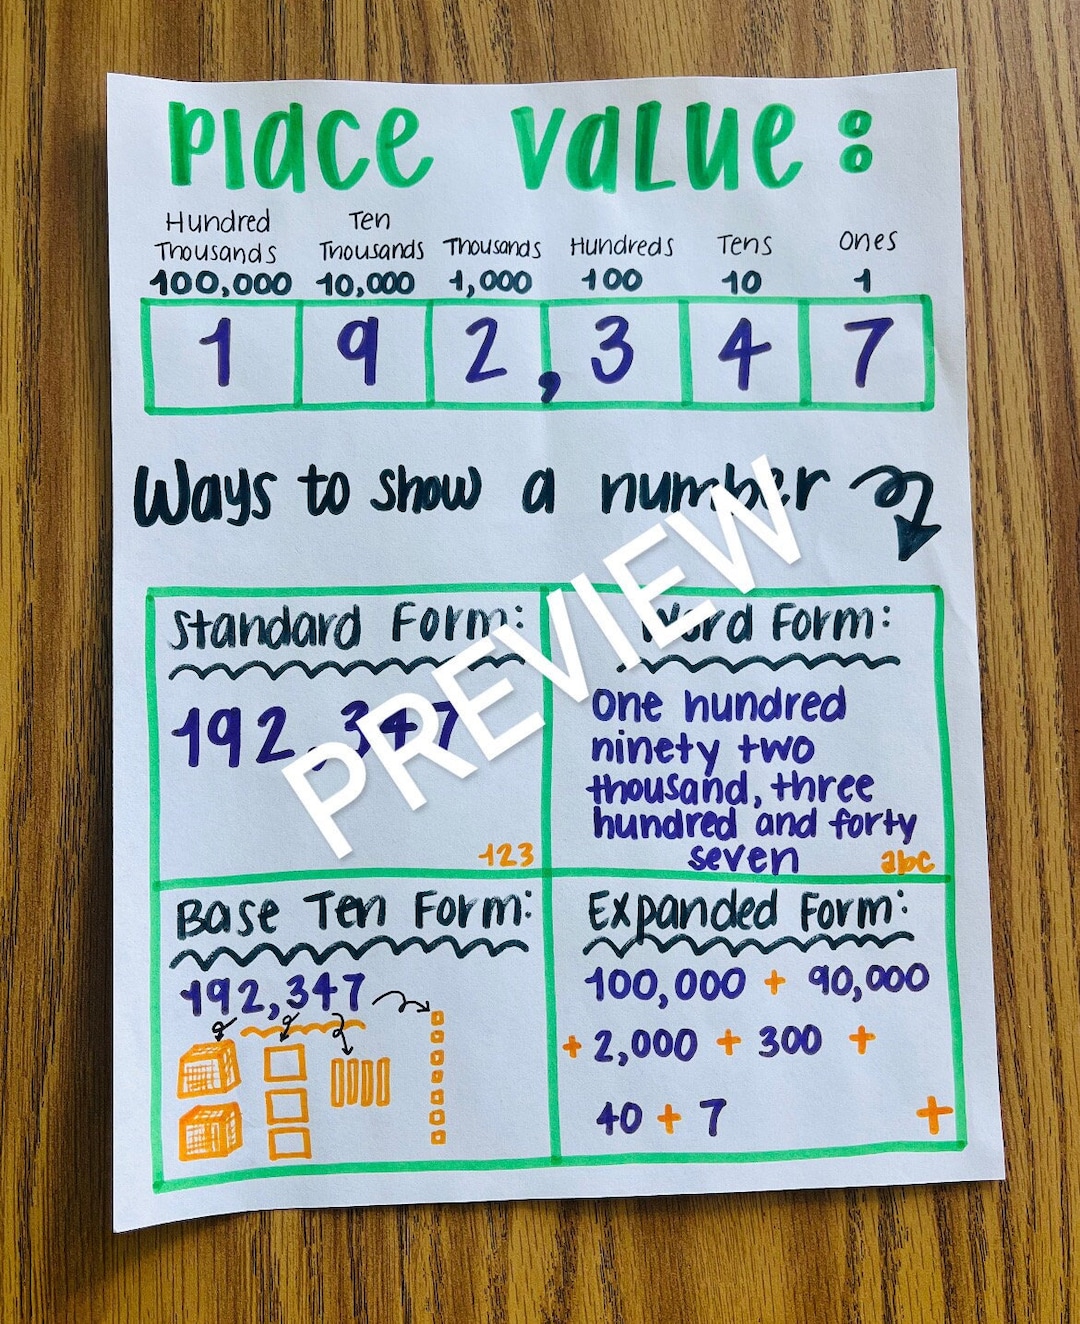 Place Value:
Hundred Thousands Ten Thousands Thousands Hundreds Tens Ones
100,000 10,000 1,000 100 10 1
1 9 2, 3 4 7
Ways to show a number
Standard Form:
192,347
123
Word Form:
One hundred
ninety two
thousand, three
hundred and forty
seven
abc
Base Ten Form:
192,347
Expanded Form:
100,000 + 90,000
+ 2,000 + 300 +
40 + 7
+
PREVIEW